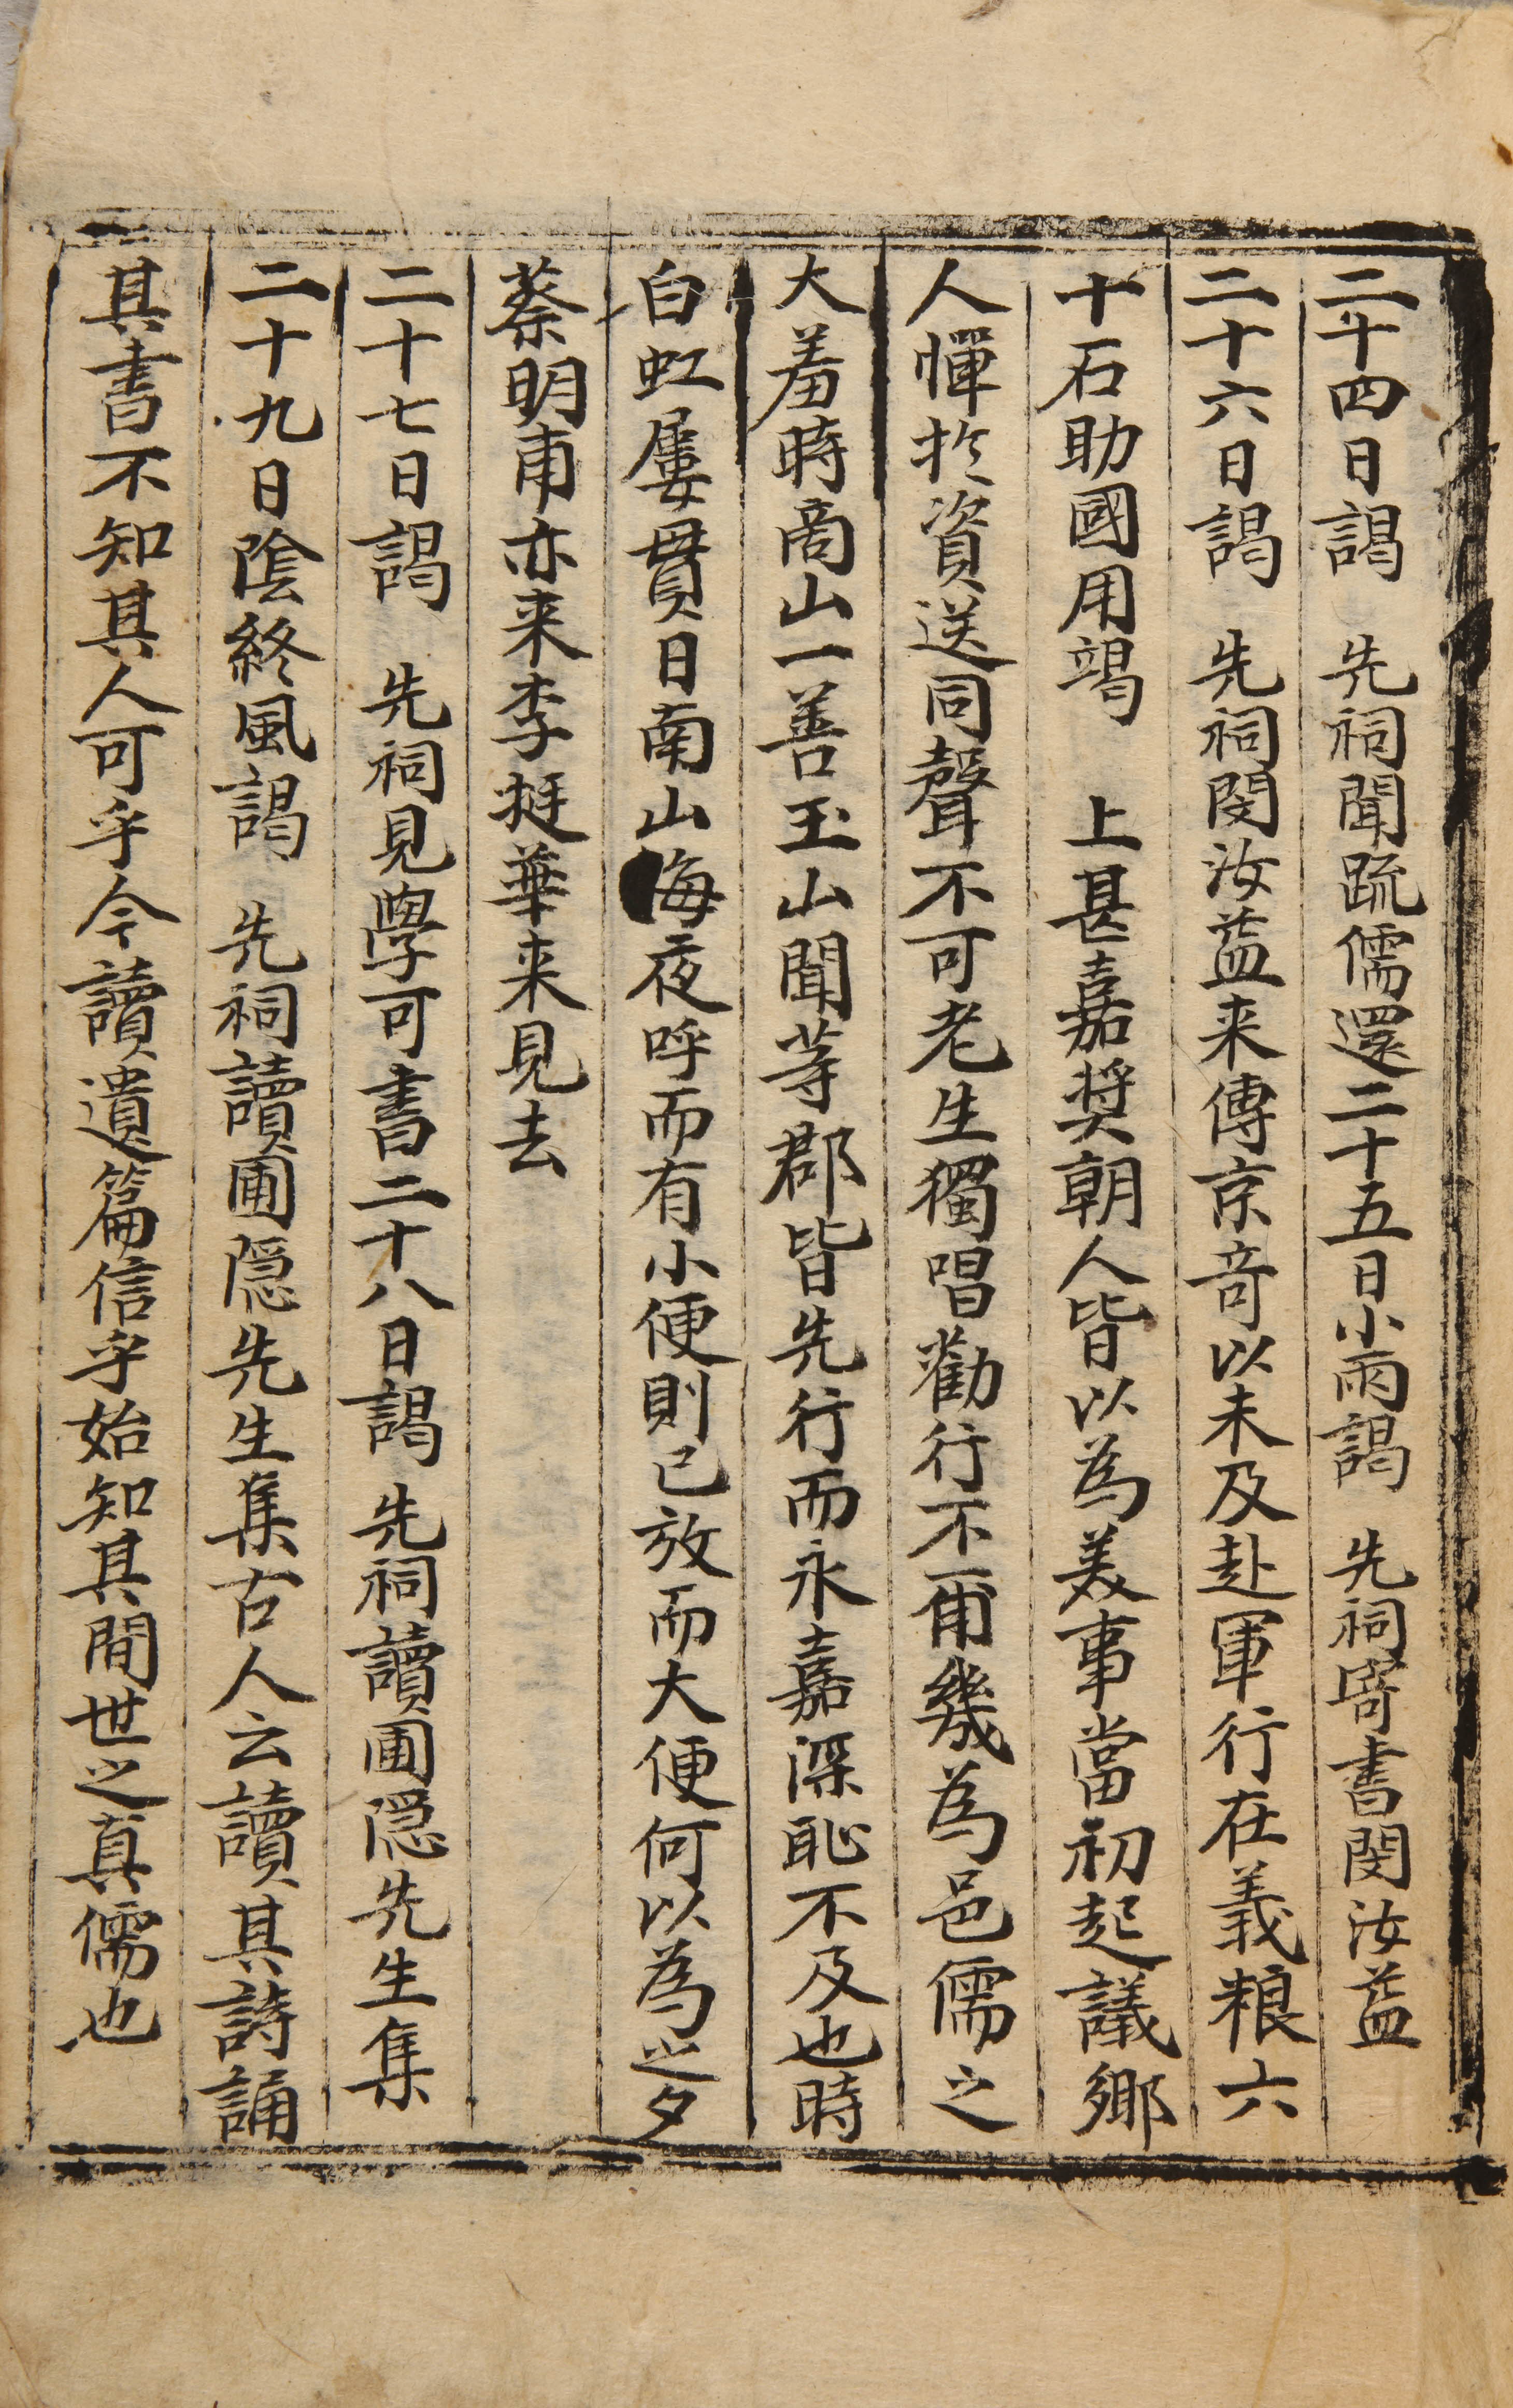 二十四日謁　先祠聞疏儒還二十五日小雨謁　先祠寄書閔汝益
二十六日謁　先祠閔汝益来傳京奇以未及赴軍行在義粮六
十石助國用竭　上甚嘉奬朝人皆以為美事當初起議鄉
人憚扵資送同聲不可老生獨唱勸行不甭幾為邑儒之
大羞時商山一善玉山聞等郡皆先行而永嘉深恥不及也時
白虹屢貫日南山每夜呼而有小便則已放而大便何以為之夕
蔡明甫亦来李挺華来見去
二十七日謁　先祠見學可書二十八日謁　先祠讀圃隠先生集
二十九日陰終風謁　先祠讀圃隠先生集古人云讀其詩誦
其書不知其人可乎今讀遺篇信乎始知其間世之真儒也